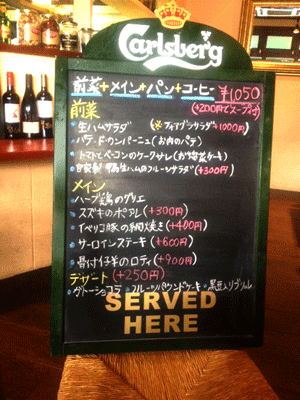 Carlsberg
前菜+メイン+パン+コーヒー ¥1,050
(+200円でスープ付)
前菜
生ハムサラダ (※フォアグラサラダ+1000円)
パテ・ド・カンパーニュ(お肉のパテ)
トマトとベーコンのケークサレ(お惣菜ケーキ)
自家製 鴨生ハムのフルーツサラダ(+300円)
メイン
ハーブ鶏のグリエ
スズキのポワレ(+300円)
イベリコ豚の網焼き(+400円)
サーロインステーキ(+600円)
骨付仔羊のロティ(+900円)
デザート(+250円)
ガトーショコラ・フルーツパウンドケーキ・黒豆入り
SERVED
HERE